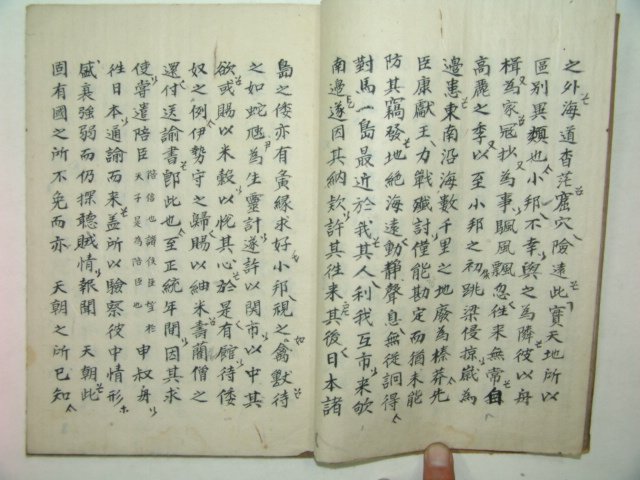 之外海道杳茫窟穴險遠此實天地所以
區別異類也小邦不幸與之為隣彼以舟
楫為家冠抄為事颿風飄忽往来無常自
高麗之季以至小邦之初跳梁侵掠嵗為
邊患東南沿海數千里之地廢為榛莽先
臣康獻王力戰殲討僅能勘定而猶未能
防其竊發地絕海遠動靜聲息無従詗得
對馬一島最近於我其人利我互市来欵
南邊遂因其納欵許其往来其後日本諸
島之倭亦有夤緣求好小邦視之禽獸待
之如蛇虺為生靈計遂許以関市以中其
欲或賜以米糓以恱其心於是有館待倭
奴之例伊勢守之歸賜以紬米壽藺僧之
還付送諭書即此也至正統年間因其求
使甞遣陪臣 申叔舟
徃日本通諭而来盖所以驗察彼中情形
盛衰強弱而仍探聽賊情報聞 天朝此
固有國之所不免而亦 天朝之所已知